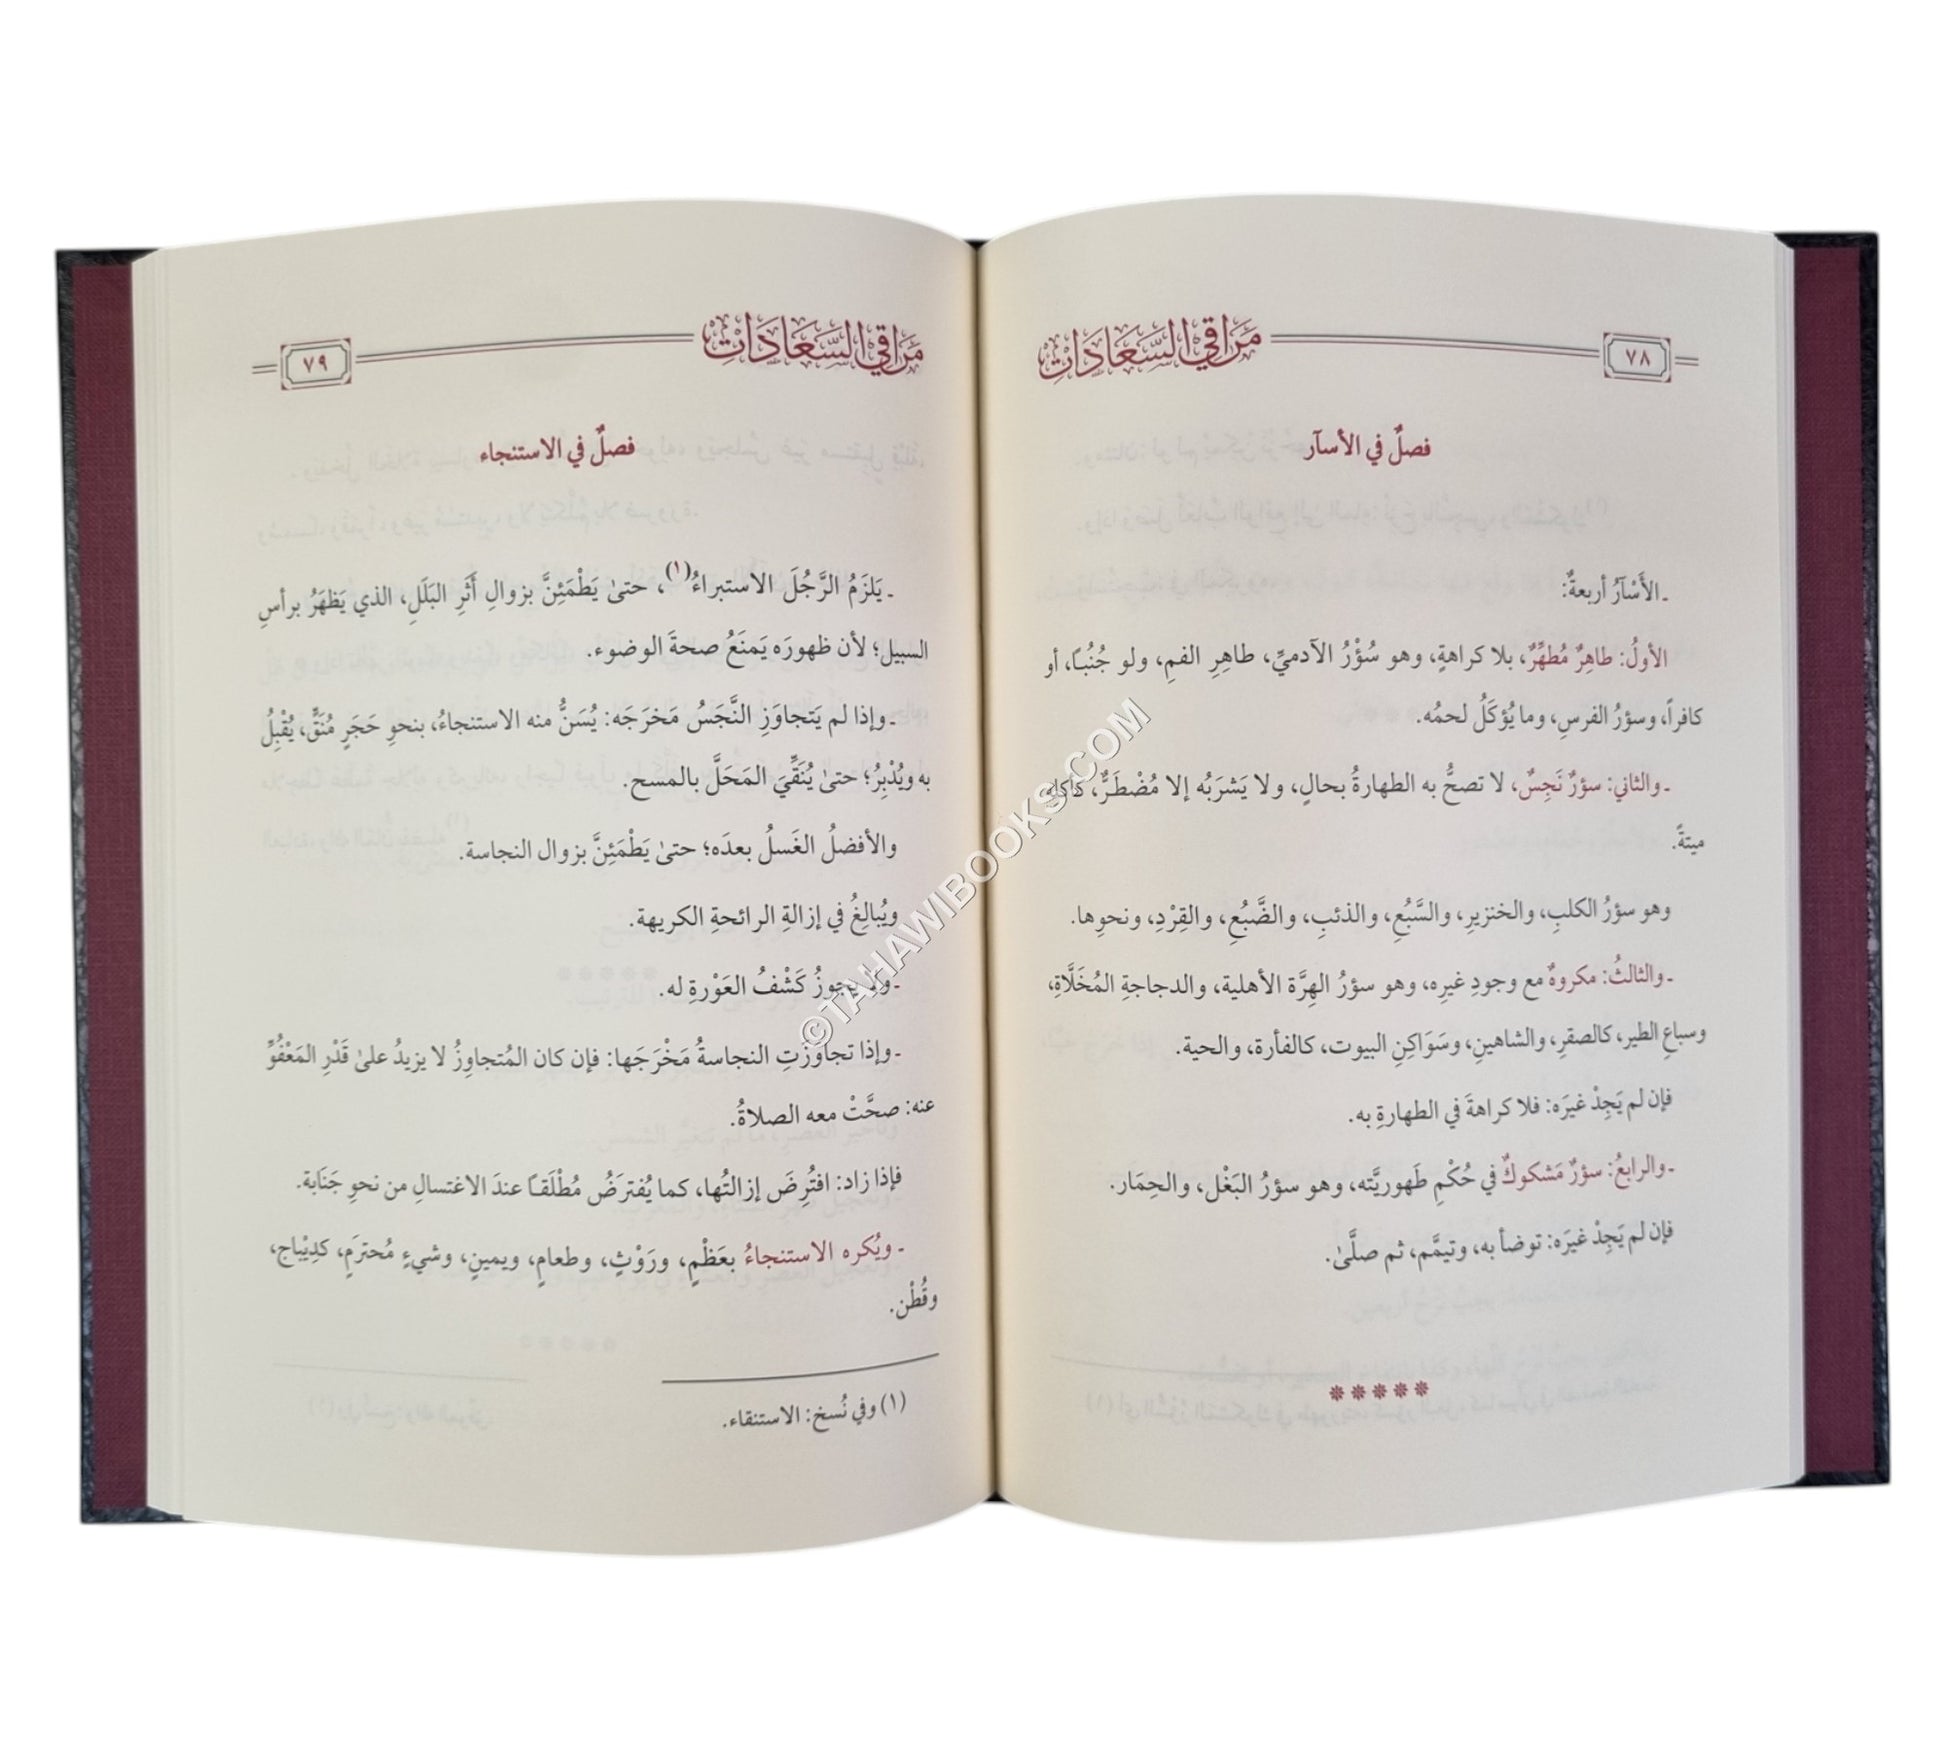 مَرَاقِي السَّعَادَاتِ
٧٨
فصلٌ في الأسآر
ـ الأَسْآرُ أربعةٌ:
الأولُ: طاهِرٌ مُطهِّرٌ، بلا كراهةٍ، وهو سُؤْرُ الآدميِّ، طاهِرِ الفمِ، ولو جُنُبـاً، أو
كافراً، وسؤرُ الفرسِ، وما يُؤكَلُ لحمُه.
ـ والثاني: سؤرٌ نَجِسٌ، لا تصحُّ به الطهارةُ بحالٍ، ولا يَشرَبُه إلا مُضْطَرٌّ، كأكله
ميتةً.
وهو سؤرُ الكلبِ، والخنزيرِ، والسَّبُعِ، والذئبِ، والضَّبُعِ، والقِرْدِ، ونحوِها.
ـ والثالثُ: مكروهٌ مع وجودِ غيرِه، وهو سؤرُ الهِرَّة الأهلية، والدجاجةِ المُخَلَّاةِ،
وسباعِ الطير، كالصقرِ، والشاهينِ، وسَوَاكِنِ البيوت، كالفأرة، والحية.
فإن لم يَجِدْ غيرَه: فلا كراهةَ في الطهارةِ به.
ـ والرابعُ: سؤرٌ مَشكوكٌ في حُكْمِ طَهوريَّته، وهو سؤرُ البَغْل، والحِمَار.
فإن لم يَجِدْ غيرَه: توضأ به، وتيمَّم، ثم صلَّىٰ.
*****
مَرَاقِي السَّعَادَاتِ
٧٩
فصلٌ في الاستنجاء
ـ يَلزَمُ الرَّجُلَ الاستبراءُ(١)، حتىٰ يَطْمَئِنَّ بزوالِ أَثَرِ البَلَلِ، الذي يَظهَرُ برأسِ
السبيل؛ لأن ظهورَه يَمنَعُ صحةَ الوضوء.
ـ وإذا لم يَتجاوَزِ النَّجَسُ مَخرَجَه: يُسَنُّ منه الاستنجاءُ، بنحوِ حَجَرٍ مُنَقٍّ، يُقْبِلُ
به ويُدْبِرُ؛ حتىٰ يُنَقِّيَ المَحَلَّ بالمسح.
والأفضلُ الغَسلُ بعدَه؛ حتىٰ يَطْمَئِنَّ بزوال النجاسة.
ويُبالِغُ في إزالةِ الرائحةِ الكريهة.
ـ ولا يجوزُ كَشْفُ العَوْرةِ له.
ـ وإذا تجاوَزَتِ النجاسةُ مَخْرَجَها: فإن كان المُتجاوِزُ لا يزيدُ علىٰ قَدْرِ المَعْفُوِّ
عنه: صحَّتْ معه الصلاةُ.
فإذا زاد: افتُرِضَ إزالتُها، كما يُفترَضُ مُطْلَقـاً عندَ الاغتسالِ من نحوِ جَنَابة.
ـ ويُكره الاستنجاءُ بعَظْمٍ، ورَوْثٍ، وطعامٍ، ويمينٍ، وشيءٍ مُحترَمٍ، كدِيْباج،
وقُطْن.
(١) وفي نُسخ: الاستنقاء.
©TAHAWIBOOKS.COM